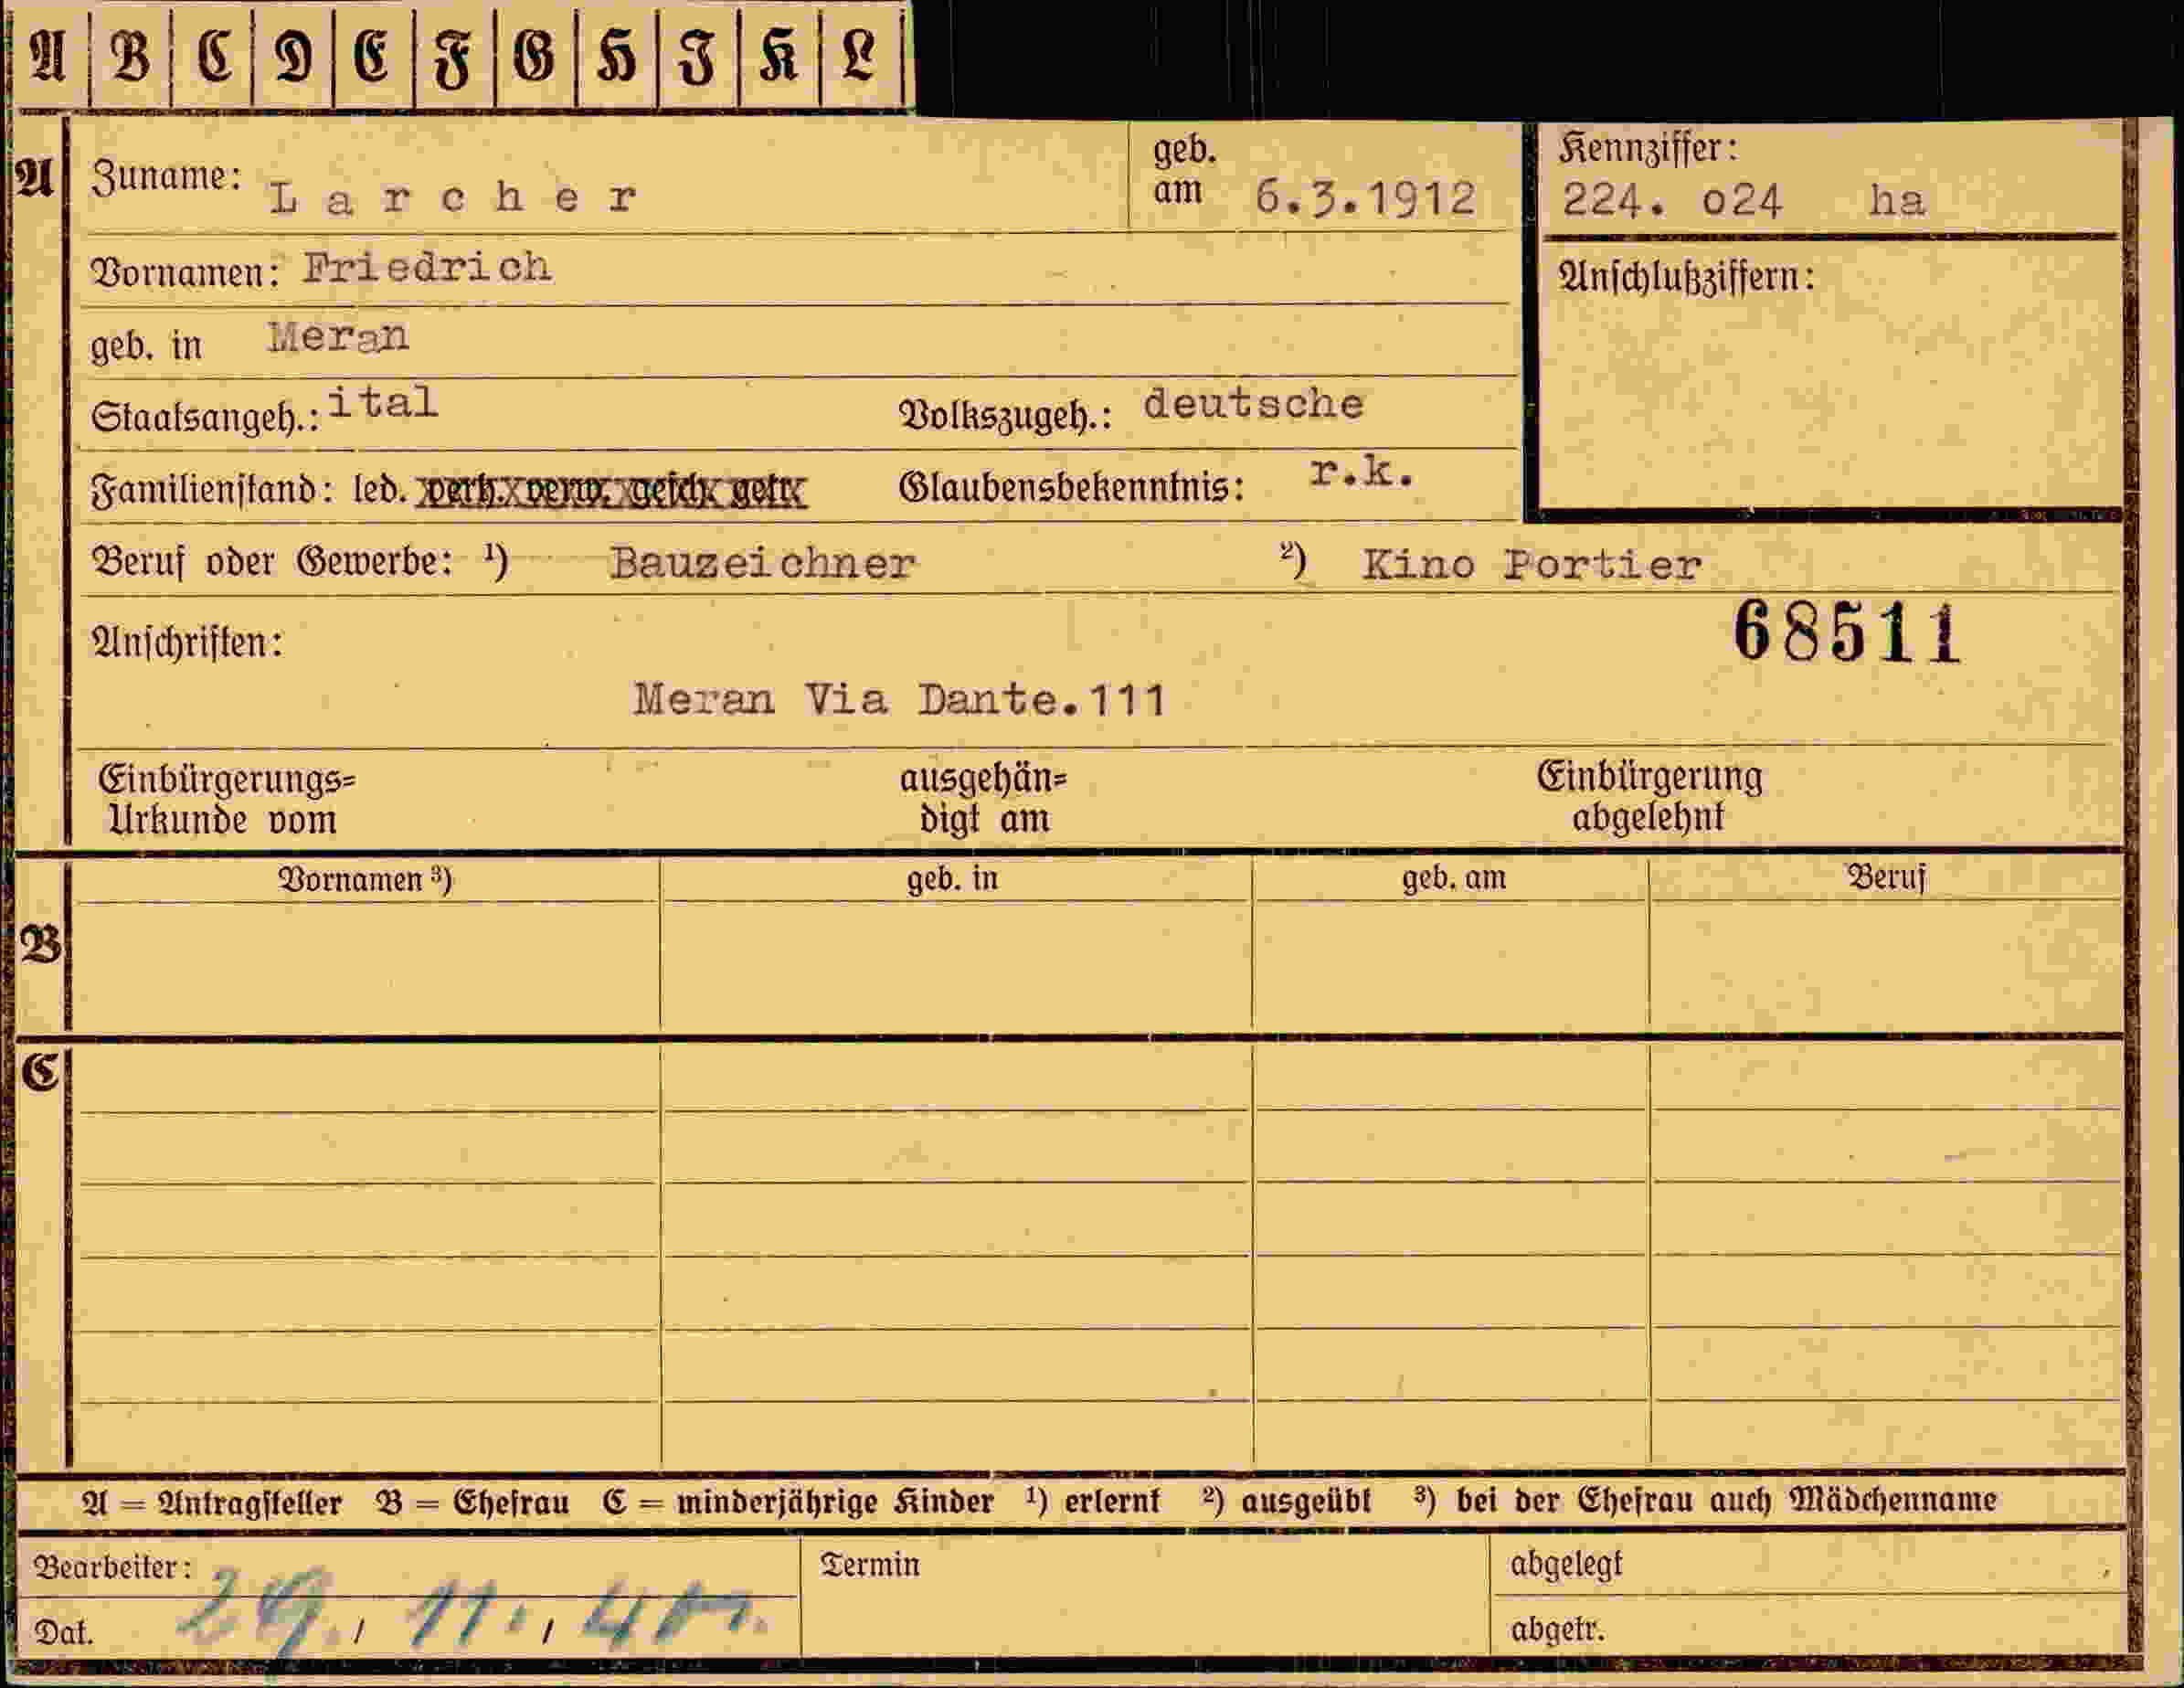 A B C D E F G H I K L
A Zuname: Larcher geb. am 6.3.1912 Kennziffer: 224. o24 ha
Vornamen: Friedrich Anschlußziffern:
geb. in Meran
Staatsangeh.: ital Volkszugeh.: deutsche
Familienstand: led. verh. verw. gesch. getr. Glaubensbekenntnis: r.k.
Beruf oder Gewerbe: ¹) Bauzeichner ²) Kino Portier
68511
Anschriften:
Meran Via Dante.111
Einbürgerungs= ausgehän= Einbürgerung
Urkunde vom digt am abgelehnt
Vornamen ³) geb. in geb. am Beruf
B
C
A = Antragsteller B = Ehefrau C = minderjährige Kinder ¹) erlernt ²) ausgeübt ³) bei der Ehefrau auch Mädchenname
Bearbeiter: Termin abgelegt
Dat. 29. 11. abgetr.